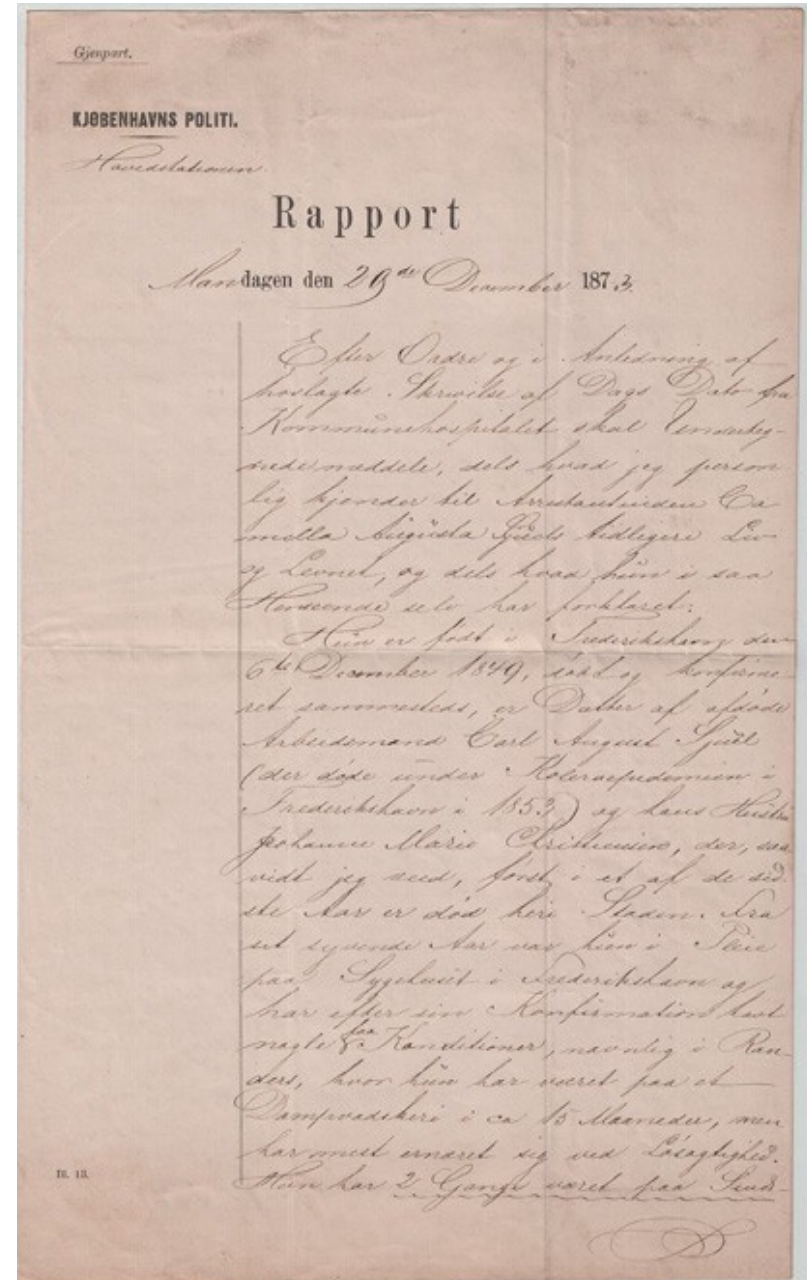 Gjenpart.
KJØBENHAVNS POLITI.
Hovedstationen
Rapport
Mandagen den 29de December 1873.
Efter Ordre og i Anledning af
hoslagte Skrivelse af Dags Dato fra
Kommunehospitalet skal Underteg-
nede meddele, dels hvad jeg person-
lig kjender til Arrestantinden Ca
milla Augusta Juuls tidligere Liv
og Levnet, og dels hvad hun i saa
Henseende selv har forklaret:
Hun er født i Frederikshavn den
6te December 1849, døbt og konfirme-
ret sammesteds, er Datter af afdøde
Arbeidsmand Carl August Sjuel
(der døde under Koleraepidemien i
Frederikshavn i 1853) og hans Hustru
Johanne Marie Christensen, der, saa
vidt jeg veed, først i et af de sid-
ste Aar er død heri Staden. Fra
sit syvende Aar var hun i Pleie
paa Sygehuset i Frederikshavn og
har efter sin Konfirmation havt
nogle faa Konditioner, navnlig i Ran-
ders, hvor hun har været paa et
Dampvadskeri i ca 15 Maaneder, men
har mest ernæret sig ved Løsagtighed.
Hun har 2 Gange været paa Sinds-
Bl. 13.